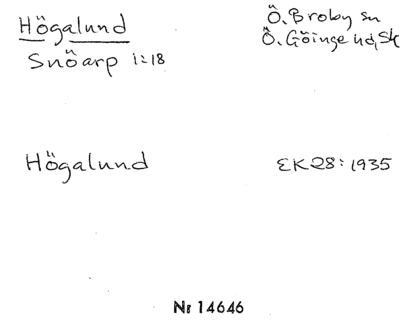 Högalund
Snöarp 1:18
Ö. Broby sn
Ö. Göinge hd, Sk
Högalund
EK28:1935
Nr 14646